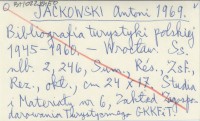 JACKOWSKI Antoni 1969.
Bibliografia turystyki polskiej
1945-1960. - Wrocław. Ss.
nlb. 2, 246, Sum., Rés., Zsf.,
Rez., okł., cm 24 x 17. Studia
i Materiały nr 6, Zakład Zagospo-
darowania Turystycznego GKKFiT.